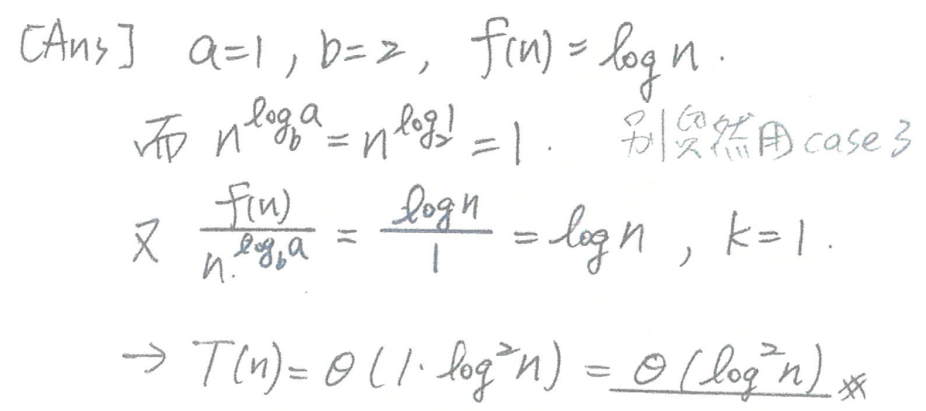 [Ans] a=1, b=2, f(n)=log n.
而 n^{log_b a} = n^{log_2 1} = 1. 別貿然用 case 3
又 f(n)/n^{log_b a} = log n/1 = log n, k=1.
→ T(n)=θ(1·log²n) = θ(log²n) ※